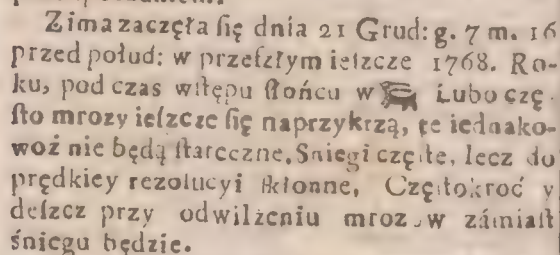 Zima zaczęła ſię dnia 21 Grud: g. 7 m. 16
przed połud: w przeſzłym ieſzcze 1768. Ro-
ku, pod czas wſtępu ſłońcu w ♑ Lubo czę-
ſto mrozy ieſzcze ſię naprzykrzą, te iednako-
woż nie będą ſtateczne. Sniegi częſte, lecz do
prędkiey rezolucyi ſkłonne, Częſtokroć y
deſzcz przy odwilżeniu mrozow zámiaſt
śniegu będzie.